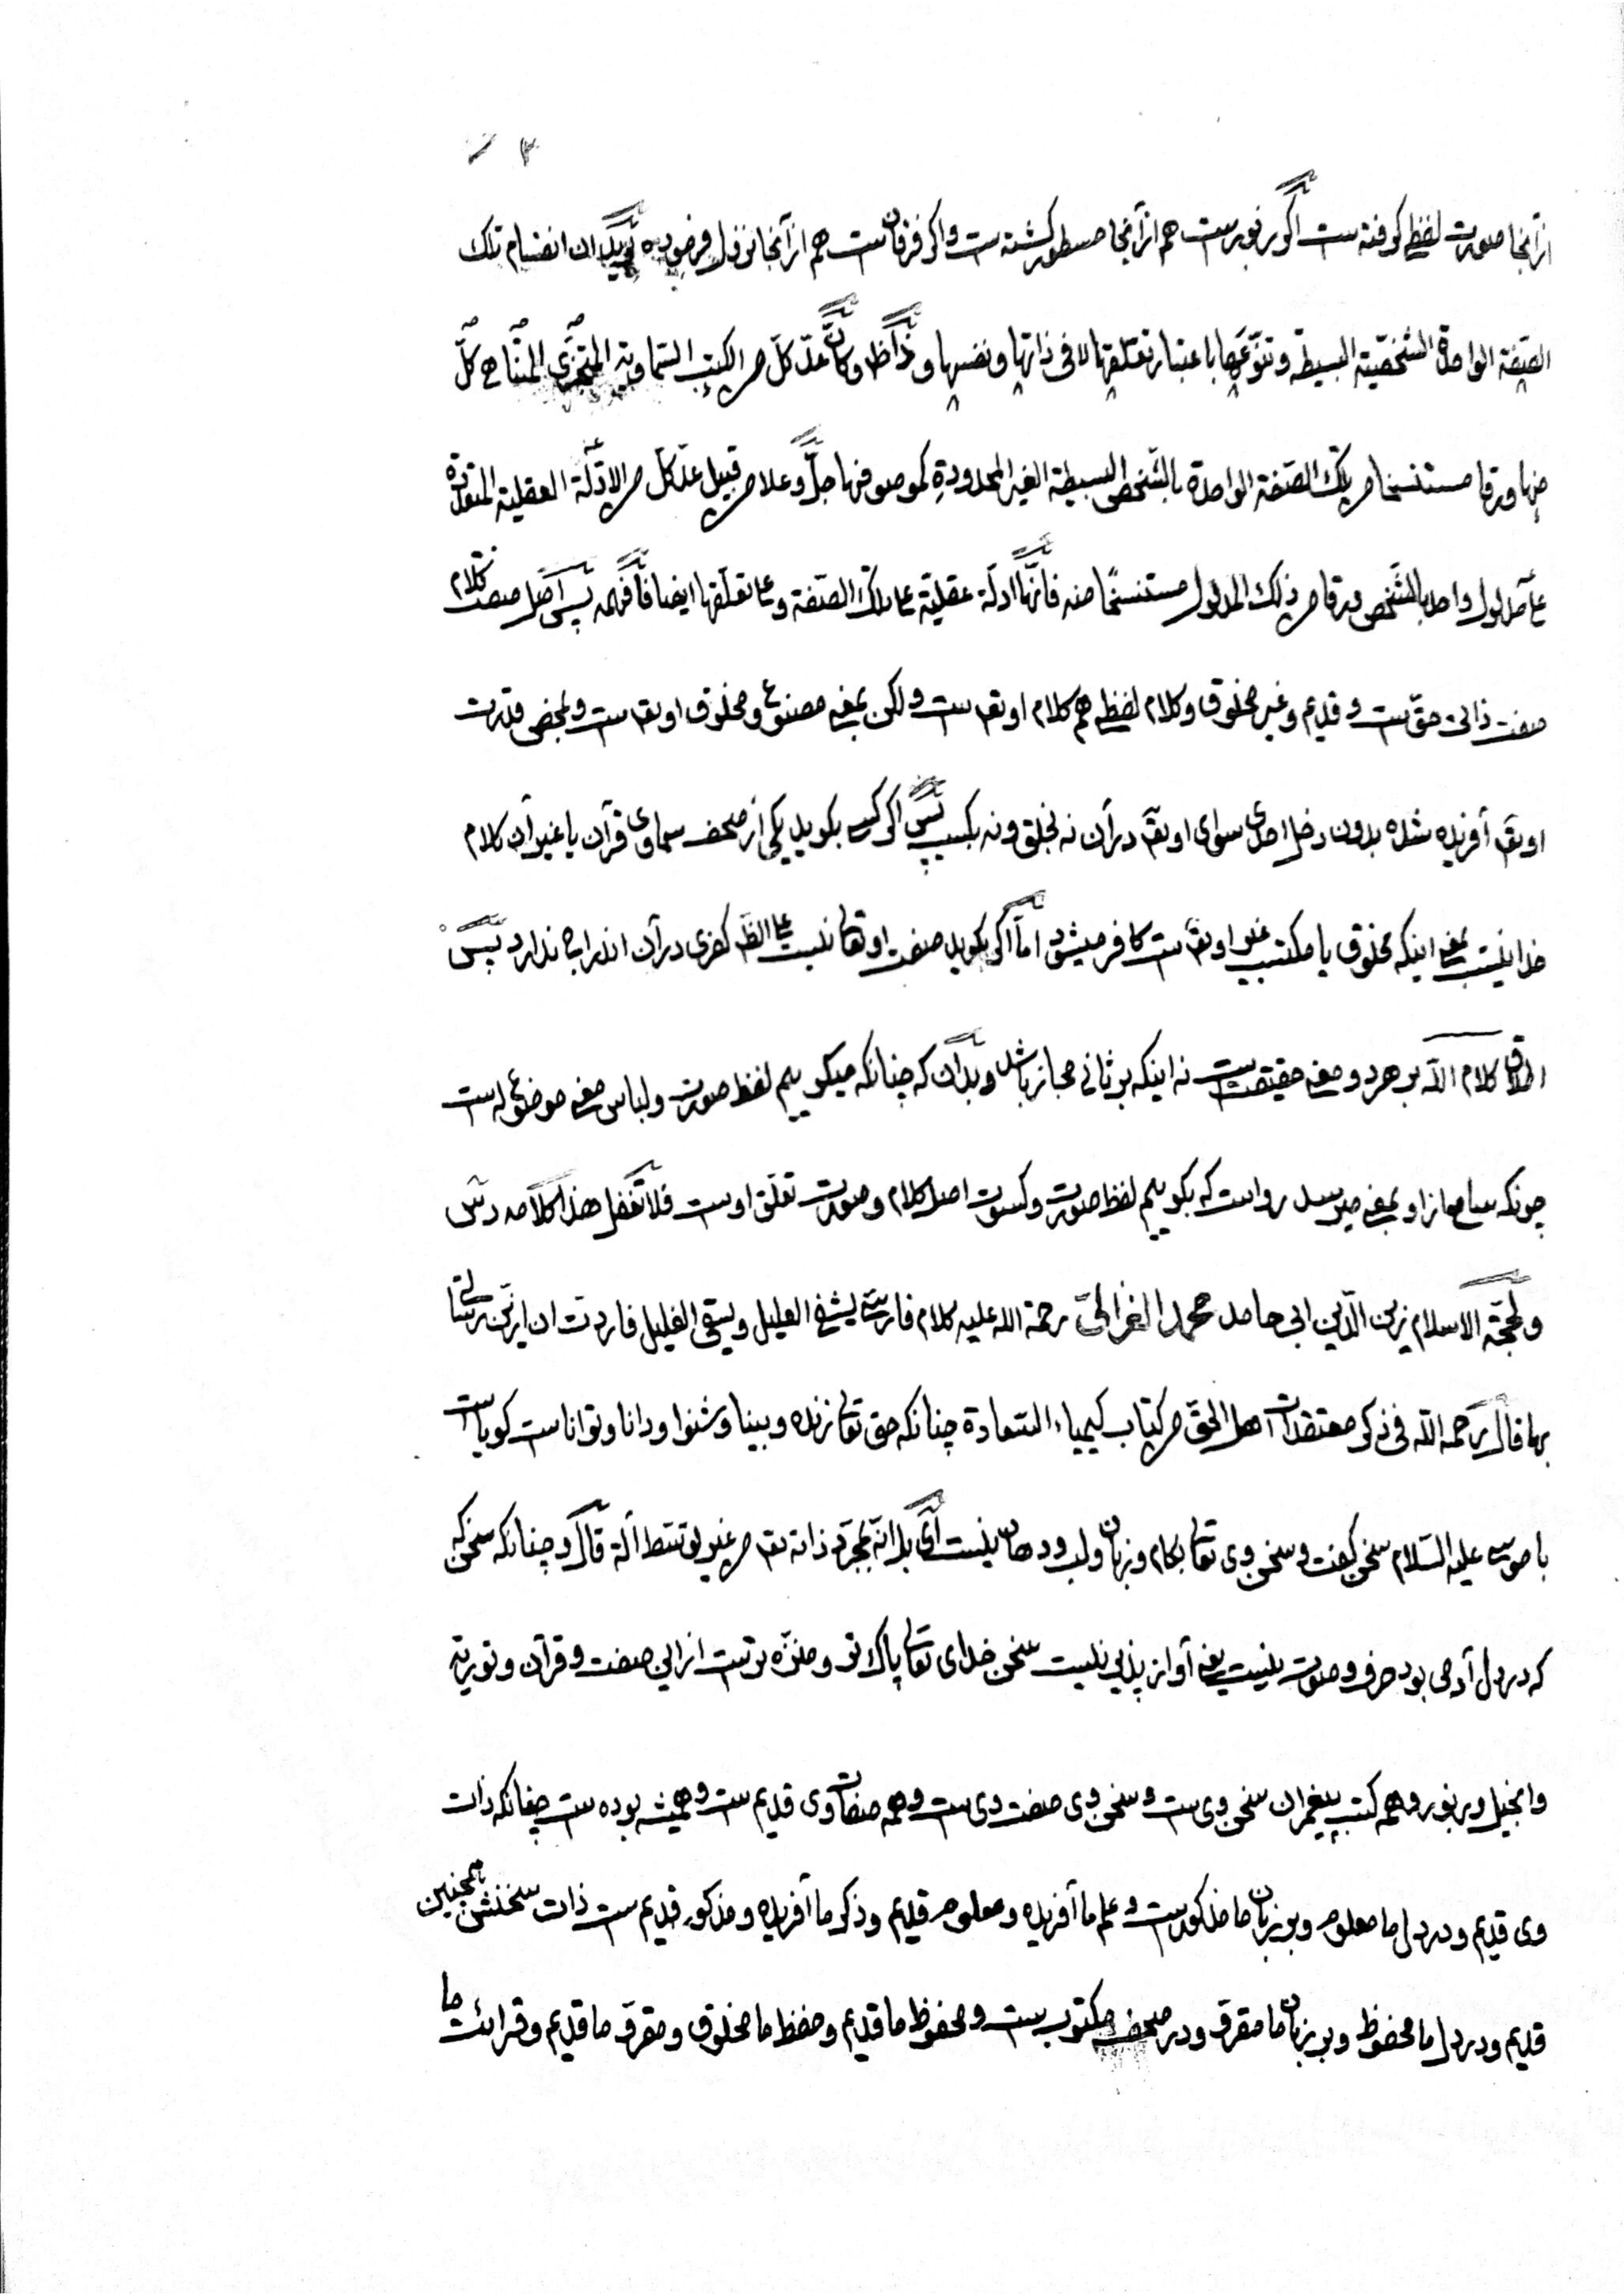 ۳
ازآنجا صورت لفظی گرفته ست اگر زبورست هم ازآنجا مسطور کشته ست واکر فرقان ست هم ازآنجا نزول فرموده ان انقسام تلک
الصفة الواحدة الشخصیّة البسیطة وتنوّعها باعتبار تعلّقها لا فی ذاتها ونفسها وکأنّ عدّ کلّ من الکتب السّماویة المتجزّی المتناهی کلّ
منها ورقا مستنسخا من تلک الصّفة الواحدة بالشّخص البسیطة الغیر المحدودة کموصوفها جلّ وعلا من قبیل عدّ کلّ من الادّلة العقلیة المتعددة
علی مدلول واحد بالشّخص ورقا من ذلک المدلول مستنسخًا منه فانّها ادلّة عقلیّة علی تلک الصّفة وعلی تعلّقها ایضا فافهمه پس اصل صفت کلام
صفت ذاتی حقّ ست و قدیم وغیر مخلوق وکلام لفظی هم کلام اوتع ست ولکن بمعنی مصنوع ومخلوق اوتع ست وبمحض قدرت
اوتع آفریده شده بدون دخل احدی سوای اوتع درآن نه بخلق ونه بکسب پس اکر کسی بکوید یکی از صحف سماوی قرآن یا غیر آن کلام
خدا نیست بمعنی اینکه مخلوق یا مکتسب غیر اوتع ست کافر میشود امّا اکر بکوید صفت اوتعالی نیست علی الظّ کفری درآن اندراج ندارد پس
اطلاق کلام اللّه بر هردو معنی حقیقت ست نه اینکه بر ثانی مجاز باشد وبدان که چنانکه میکوییم لفظ صورت ولباس معنی موضوع له است
چونکه سامع از او بمعنی میرسد رواست که بکوییم لفظ صورت وکسوت اصل کلام وصورت تعلّق اوست فلا تغفل هذا کلامه دس
ولحجّة الاسلام زین الدّین ابی حامد محمد الغزالیّ رحمة الله علیه کلام فارسیّ یشفی العلیل ویسقی الغلیل فاردت ان ازیّن رسالتی
بها قال رحمه اللّه فی ذکر معتقدات اهل الحقّ من کتاب کیمیاء السّعادة چنانکه حق تعالی زنده وبینا وشنوا ودانا وتواناست کویاست
با موسی علیه السّلام سخن کفت وسخن وی تعالی بکام وزبان ولب ودهان نیست ای بل انّه بمجرّد ذاته تعه من غیر توسّط آلة قال وچنانکه سخن که
که در دل آدمی بود حرف وصوت نیست یعنی آواز پذیر نیست سخن خدای تعالی پاک تر ومنزّه ترست ازاین صفت وقرآن وتوریة
وانجیل وزبور وهمه کتب پیغمبران سخن وی ست وسخن وی صفت وی ست وهمه صفات وی قدیم ست وهمیشه بوده ست چنانکه ذات
وی قدیم ودر دل ما معلوم وبر زبان ما مذکورست وعلم ما آفریده ومعلوم قدیم وذکر ما آفریده ومذکور قدیم ست ذات سخنش همچنین
قدیم ودر دل ما محفوظ وبر زبان ما مقروّ ودر مصحف مکتوب ست ومحفوظ ما قدیم وحفظ ما مخلوق ومقروّ ما قدیم وقرائت ما